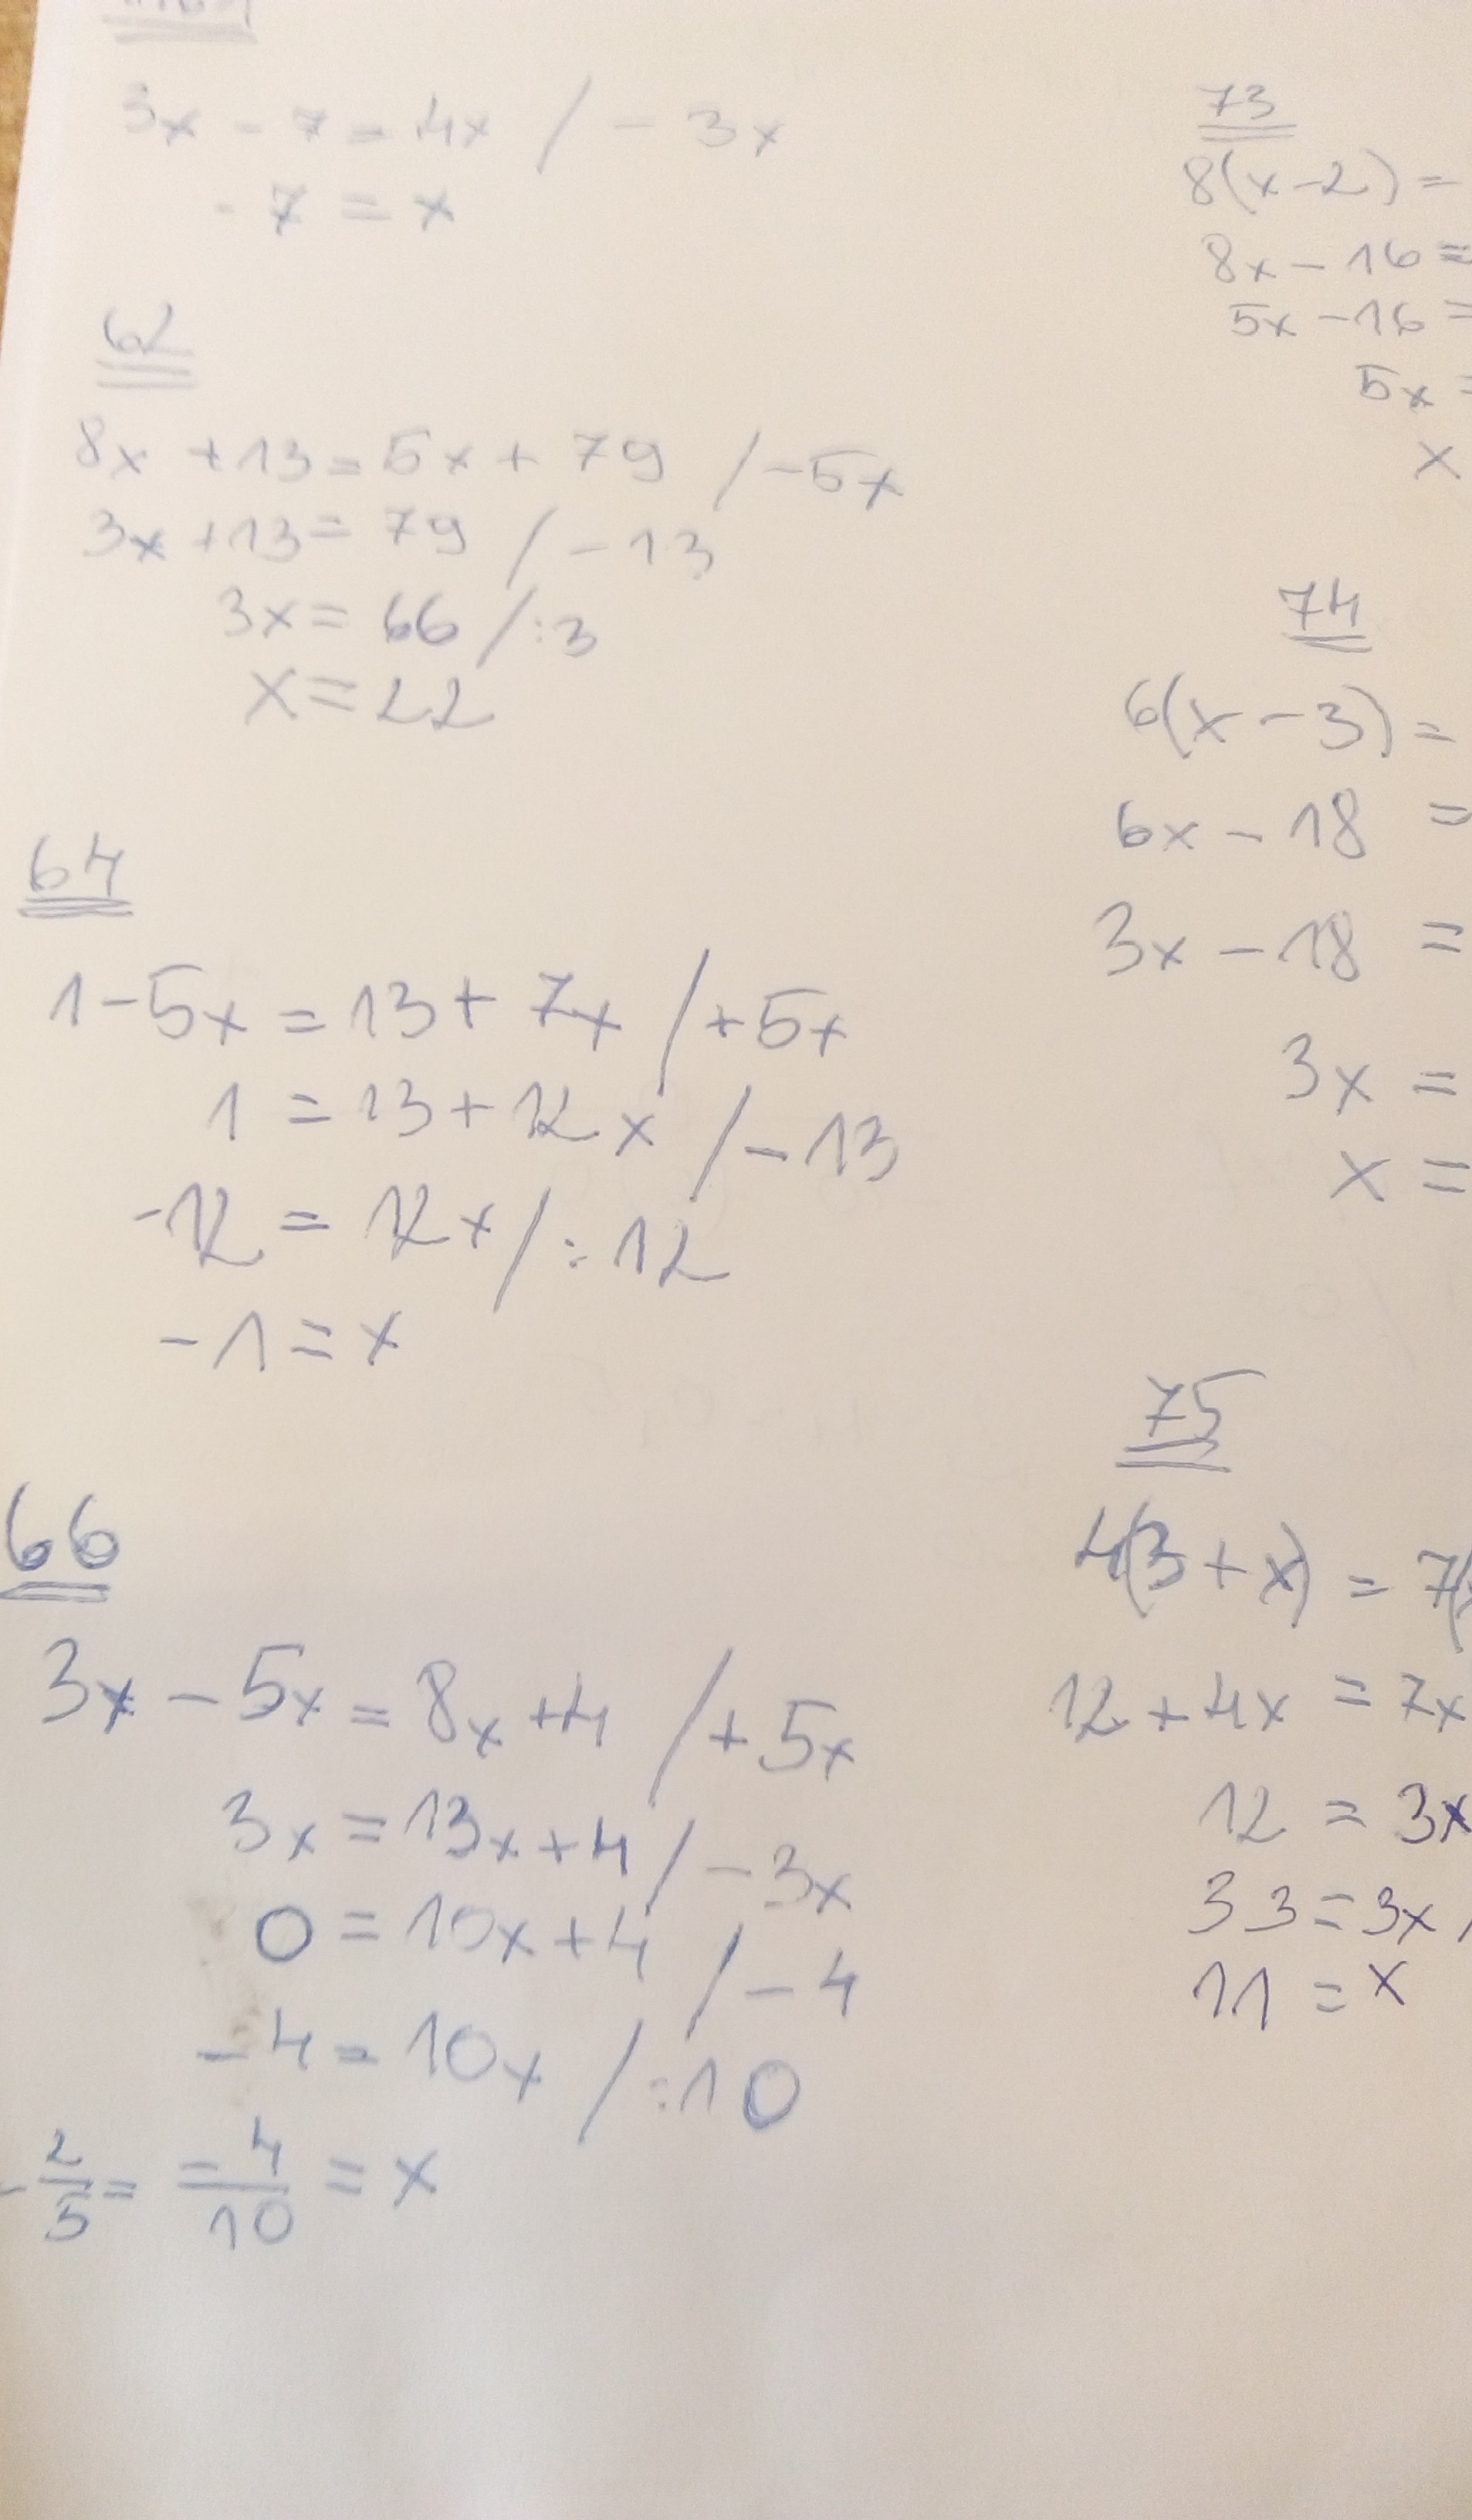 3x - 7 = 4x / - 3x
- 7 = x
62
8x + 13 = 5x + 79 / - 5x
3x + 13 = 79 / - 13
3x = 66 / : 3
x = 22
64
1 - 5x = 13 + 7x / + 5x
1 = 13 + 12x / - 13
-12 = 12x / : 12
- 1 = x
66
3x - 5x = 8x + 4 / + 5x
3x = 13x + 4 / - 3x
0 = 10x + 4 / - 4
- 4 = 10x / : 10
- 2/5 = -4/10 = x
73
8(x - 2) =
8x - 16 =
5x - 16 =
5x =
x
74
6(x - 3) =
6x - 18 =
3x - 18 =
3x =
x =
75
4(3 + x) = 7(
12 + 4x = 7x
12 = 3x
33 = 3x /
11 = x